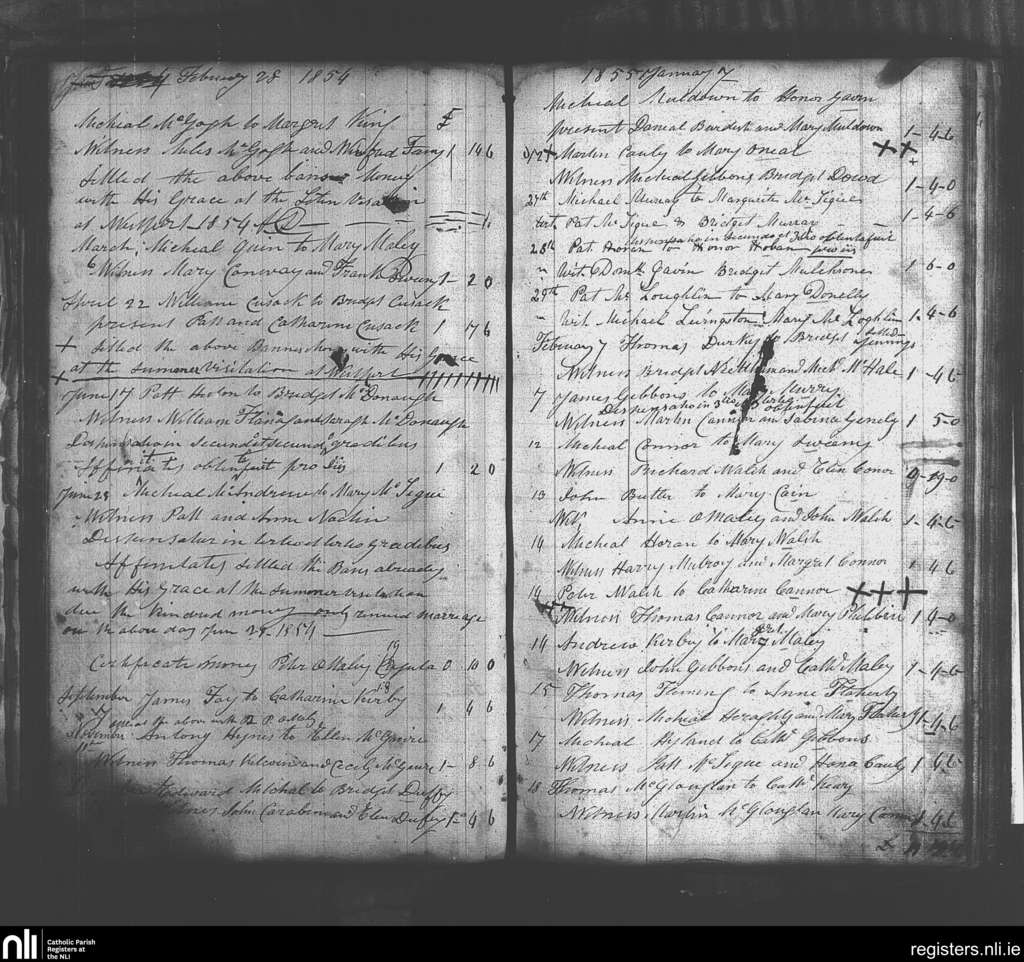 February 28 1854
Micheal McGogh to Margret King £
Witness Miles McGogh and Winifrad Fany 1 14 6
settled the above banns Money
with His Grace at the Visitation
at Westport 1854
March, Micheal Quin to Mary Maley
6 Witness Mary Conway and Frank 1- 2 0
April 22 William Cusack to Bridget Cusack
present Patt and Catharine Cusack 1 17 6
+ settled the above Bannes Money with His Grace
+ at the Summer Visitation at Westport
June 17 Patt to Bridget McDonaugh
Witness William and Saragh McDonaugh
Dispensatio in secundo et secundo gradibus
Affinitatis obtenta fuit pro 1 2 0
June 28 Micheal McAndrew to Mary McTigue
Witness Patt and Anne
in tertio et tertio gradibus
Affinitatis settled the Bans already
with His Grace at the Summer Visitation
due the Kindred money marriage
on the above day Jun 28. 1854
Certificate money Peter OMaley 0 10 0
September James Fay to Catharine Kirby 1 4 6
the above with P. OMaly
November Antony Hynes to Ellen McGuire
11th Witness Thomas and Cecily McGuire 1- 8 6
Edward Mitchal to Bridget Duffy
Witness John Carabine and Elen Duffy 1- 4 6
1855 January 7
Micheal Muldown to Honor Gavin
present Danial Burdish and Mary Muldown 1-4-6
Martin Cauly to Mary Oneal ++
Witness Micheal Gibbons Bridget Dowd 1-4-0
27th Michael Murray to Margarite McTigue
Pat McTigue & Bridget Murray 1-4-6
Dispensatio in secundo et 3tio obtenta fuit
28th Pat Horan to Honor Hoban
" Wit Dan. Gavin Bridgit Mulchrone 1-6-0
29th Pat McLoughlin to Mary Donelly
" Wit. Michael Livingston Mary McLoghlin 1-4-6
February 7 Thomas Durkin to Bridget Jennings
Witness Bridget and Mich. McHale 1-4 6
7 James Gibbons to Mary Murry
Dispensatio in 3tio obtenta fuit
Witness Martin Cannon and Sabina Gerely 1 5-0
12 Micheal Connor to Mary Sweeny
Witness Richard Walsh and Elen Conor
13 John Butler to Mary Cain
Wit. Anne OMaley and John Walsh 1-4-6
14 Micheal Horan to Mary Walsh
Witness Harry Mulroy and Margret Connor 1 4 6
14 Peter Walsh to Catharine Cannor +++
Witness Thomas Cannor and Mary Philbin 1 4-0
14 Andrew Kirby to Margret Maley
Witness John Gibbons and Cath. Maley 1-4-6
15 Thomas Fleming to Anne Flaherty
Witness Micheal Heraghty and Mary Flaherty 1-4-6
17 Micheal Hyland to Cath. Gibbons
Witness Patt McTigue and Hana Cauly 1 4 6
18 Thomas McGloughlan to Cath. Keary
Witness Martin McGloughlan Mary
nli
Catholic Parish
Registers at
the NLI
registers.nli.ie